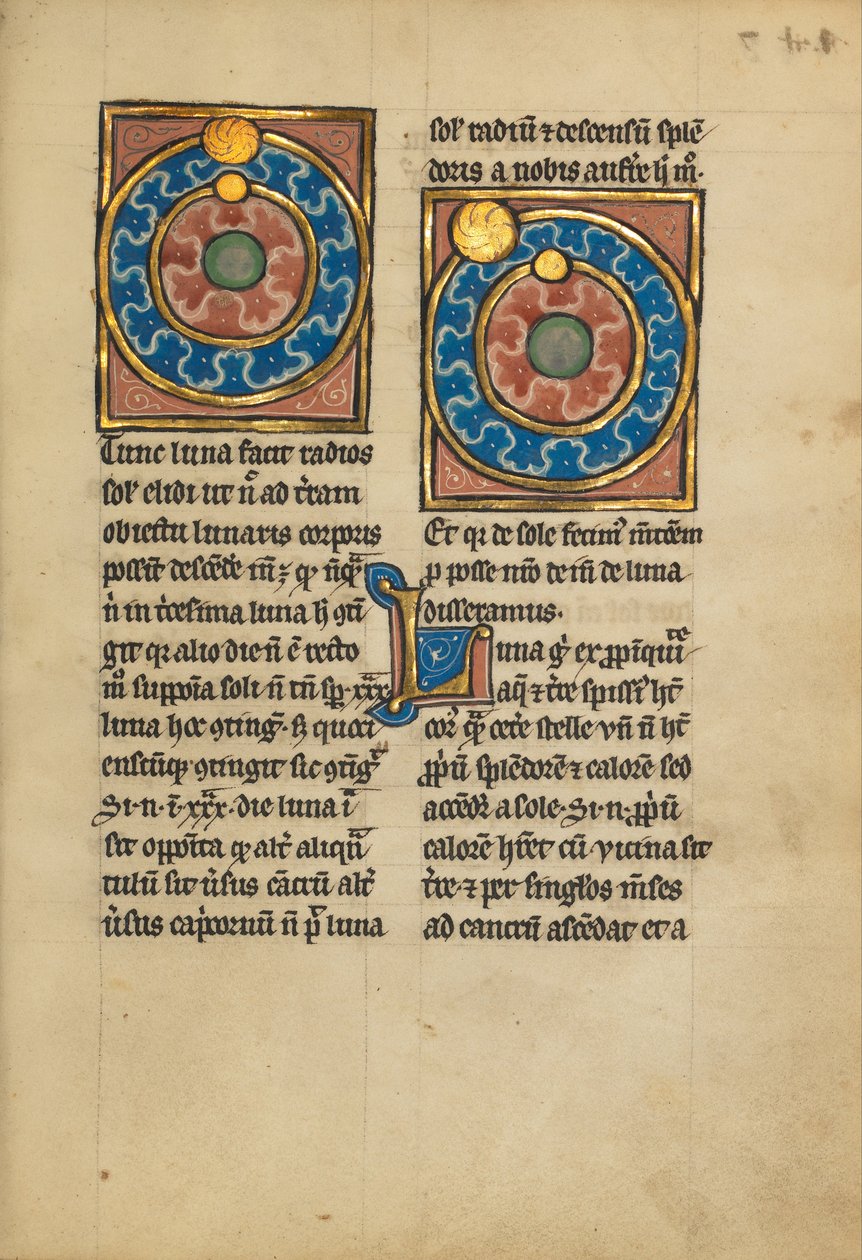 Tunc luna facit radios
sol' elidi ut n̄ ad t'ram
obiectu lunaris corporis
possit descēde
n̄ in t'cesima luna h̄ ꝯti
git qr alio die n̄ ē recto
m° suppo͞ita soli n̄ tn̄ sꝑ ·xxxᵃ·
luna hoc ꝯting̃· Ꞩ quoci
enscūqꝫ ꝯtingit sic ꝯtīg̃
Si·n·ī·xxxᵃ·die luna
sit oppo͞ita qͦ alt' aliqᵃ̄
tulū sit ũsus cācrū alt'
ũsus cap'cornū n̄ luna
sol' radiū ⁊ descensū splē
doris a nobis aufr̄e h̄ m°·
Et qr de sole fecim᷒
ꝑ posse nr̄o de luna
disseramus·
Luna g° ex ꝓpīquitᵗᵉ
aq̄ ⁊ t're spissū h̄t
cor' cet'e stelle vn̄ n̄ h̄t
ꝓp'ū splēdorē ⁊ calorē sed
accēdit᷑ a sole· Si·n·ꝓp'ū
calorē h̄r̄et cū·vicina sit
t're·⁊ per sing̃los m̄ses
ad cancrū ascēdat et a